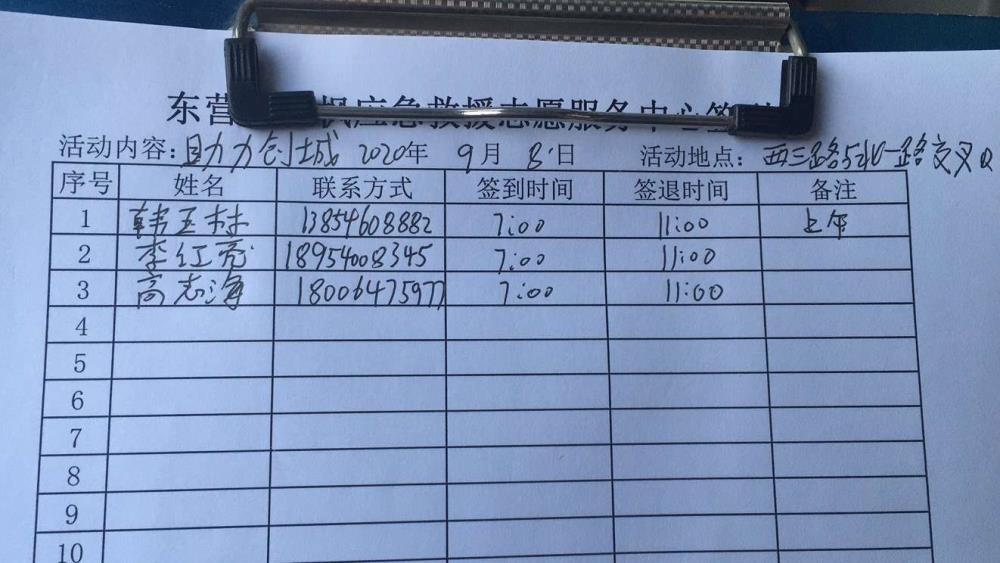 东营 枫应急救援志愿服务中心签
活动内容：助力创城 2020年 9月 8日 活动地点：西三路与北一路交叉口
序号 姓名 联系方式 签到时间 签退时间 备注
1 韩玉林 13854608882 7:00 11:00 上午
2 李红亮 18954008345 7:00 11:00
3 高志海 18006475977 7:00 11:00
4
5
6
7
8
9
10